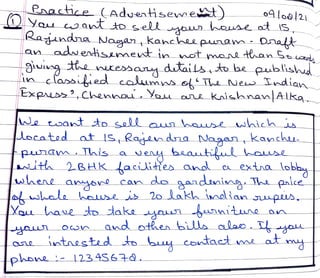 Practice (Advertisement)    09/08/21
① You want to sell your house at 15,
Rajendra Nagar, Kancheepuram. Draft
an advertisement in not more than 50 words
giving the necessary details, to be published
in classified columns of 'The New Indian
Express', Chennai. You are Krishnan/Alka.
We want to sell our house which is
located at 15, Rajendra Nagar, Kanchee-
puram. This a very beautiful house
with 2BHK facilities and a extra lobby
where anyone can do gardening. The price
of whole house is 20 lakh indian rupees.
You have to take your furniture on
your own and other bills also. If you
are intrested to buy contact me at my
phone :- 12345678.